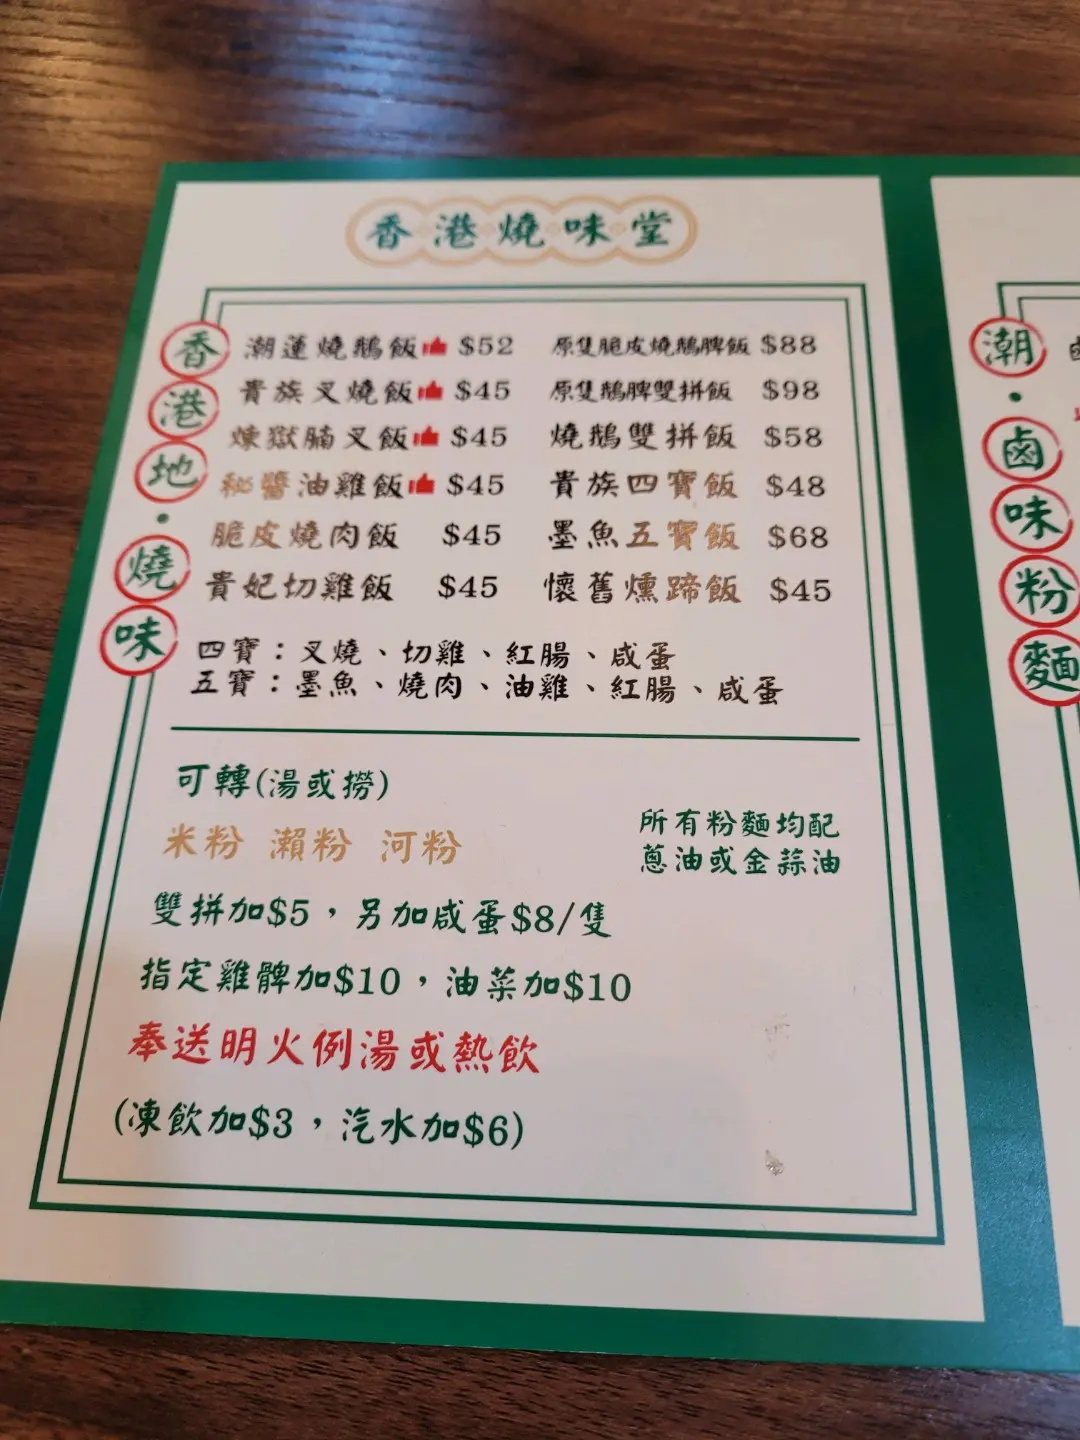 香港燒味堂
香港地·燒味
潮蓮燒鵝飯 $52 原隻脆皮燒鵝脾飯 $88
貴族叉燒飯 $45 原隻鵝脾雙拼飯 $98
煉獄腩叉飯 $45 燒鵝雙拼飯 $58
秘醬油雞飯 $45 貴族四寶飯 $48
脆皮燒肉飯 $45 墨魚五寶飯 $68
貴妃切雞飯 $45 懷舊燻蹄飯 $45
四寶：叉燒、切雞、紅腸、咸蛋
五寶：墨魚、燒肉、油雞、紅腸、咸蛋
可轉(湯或撈)
米粉 瀨粉 河粉
所有粉麵均配
蔥油或金蒜油
雙拼加$5，另加咸蛋$8/隻
指定雞髀加$10，油菜加$10
奉送明火例湯或熱飲
(凍飲加$3，汽水加$6)
潮·鹵味粉麵